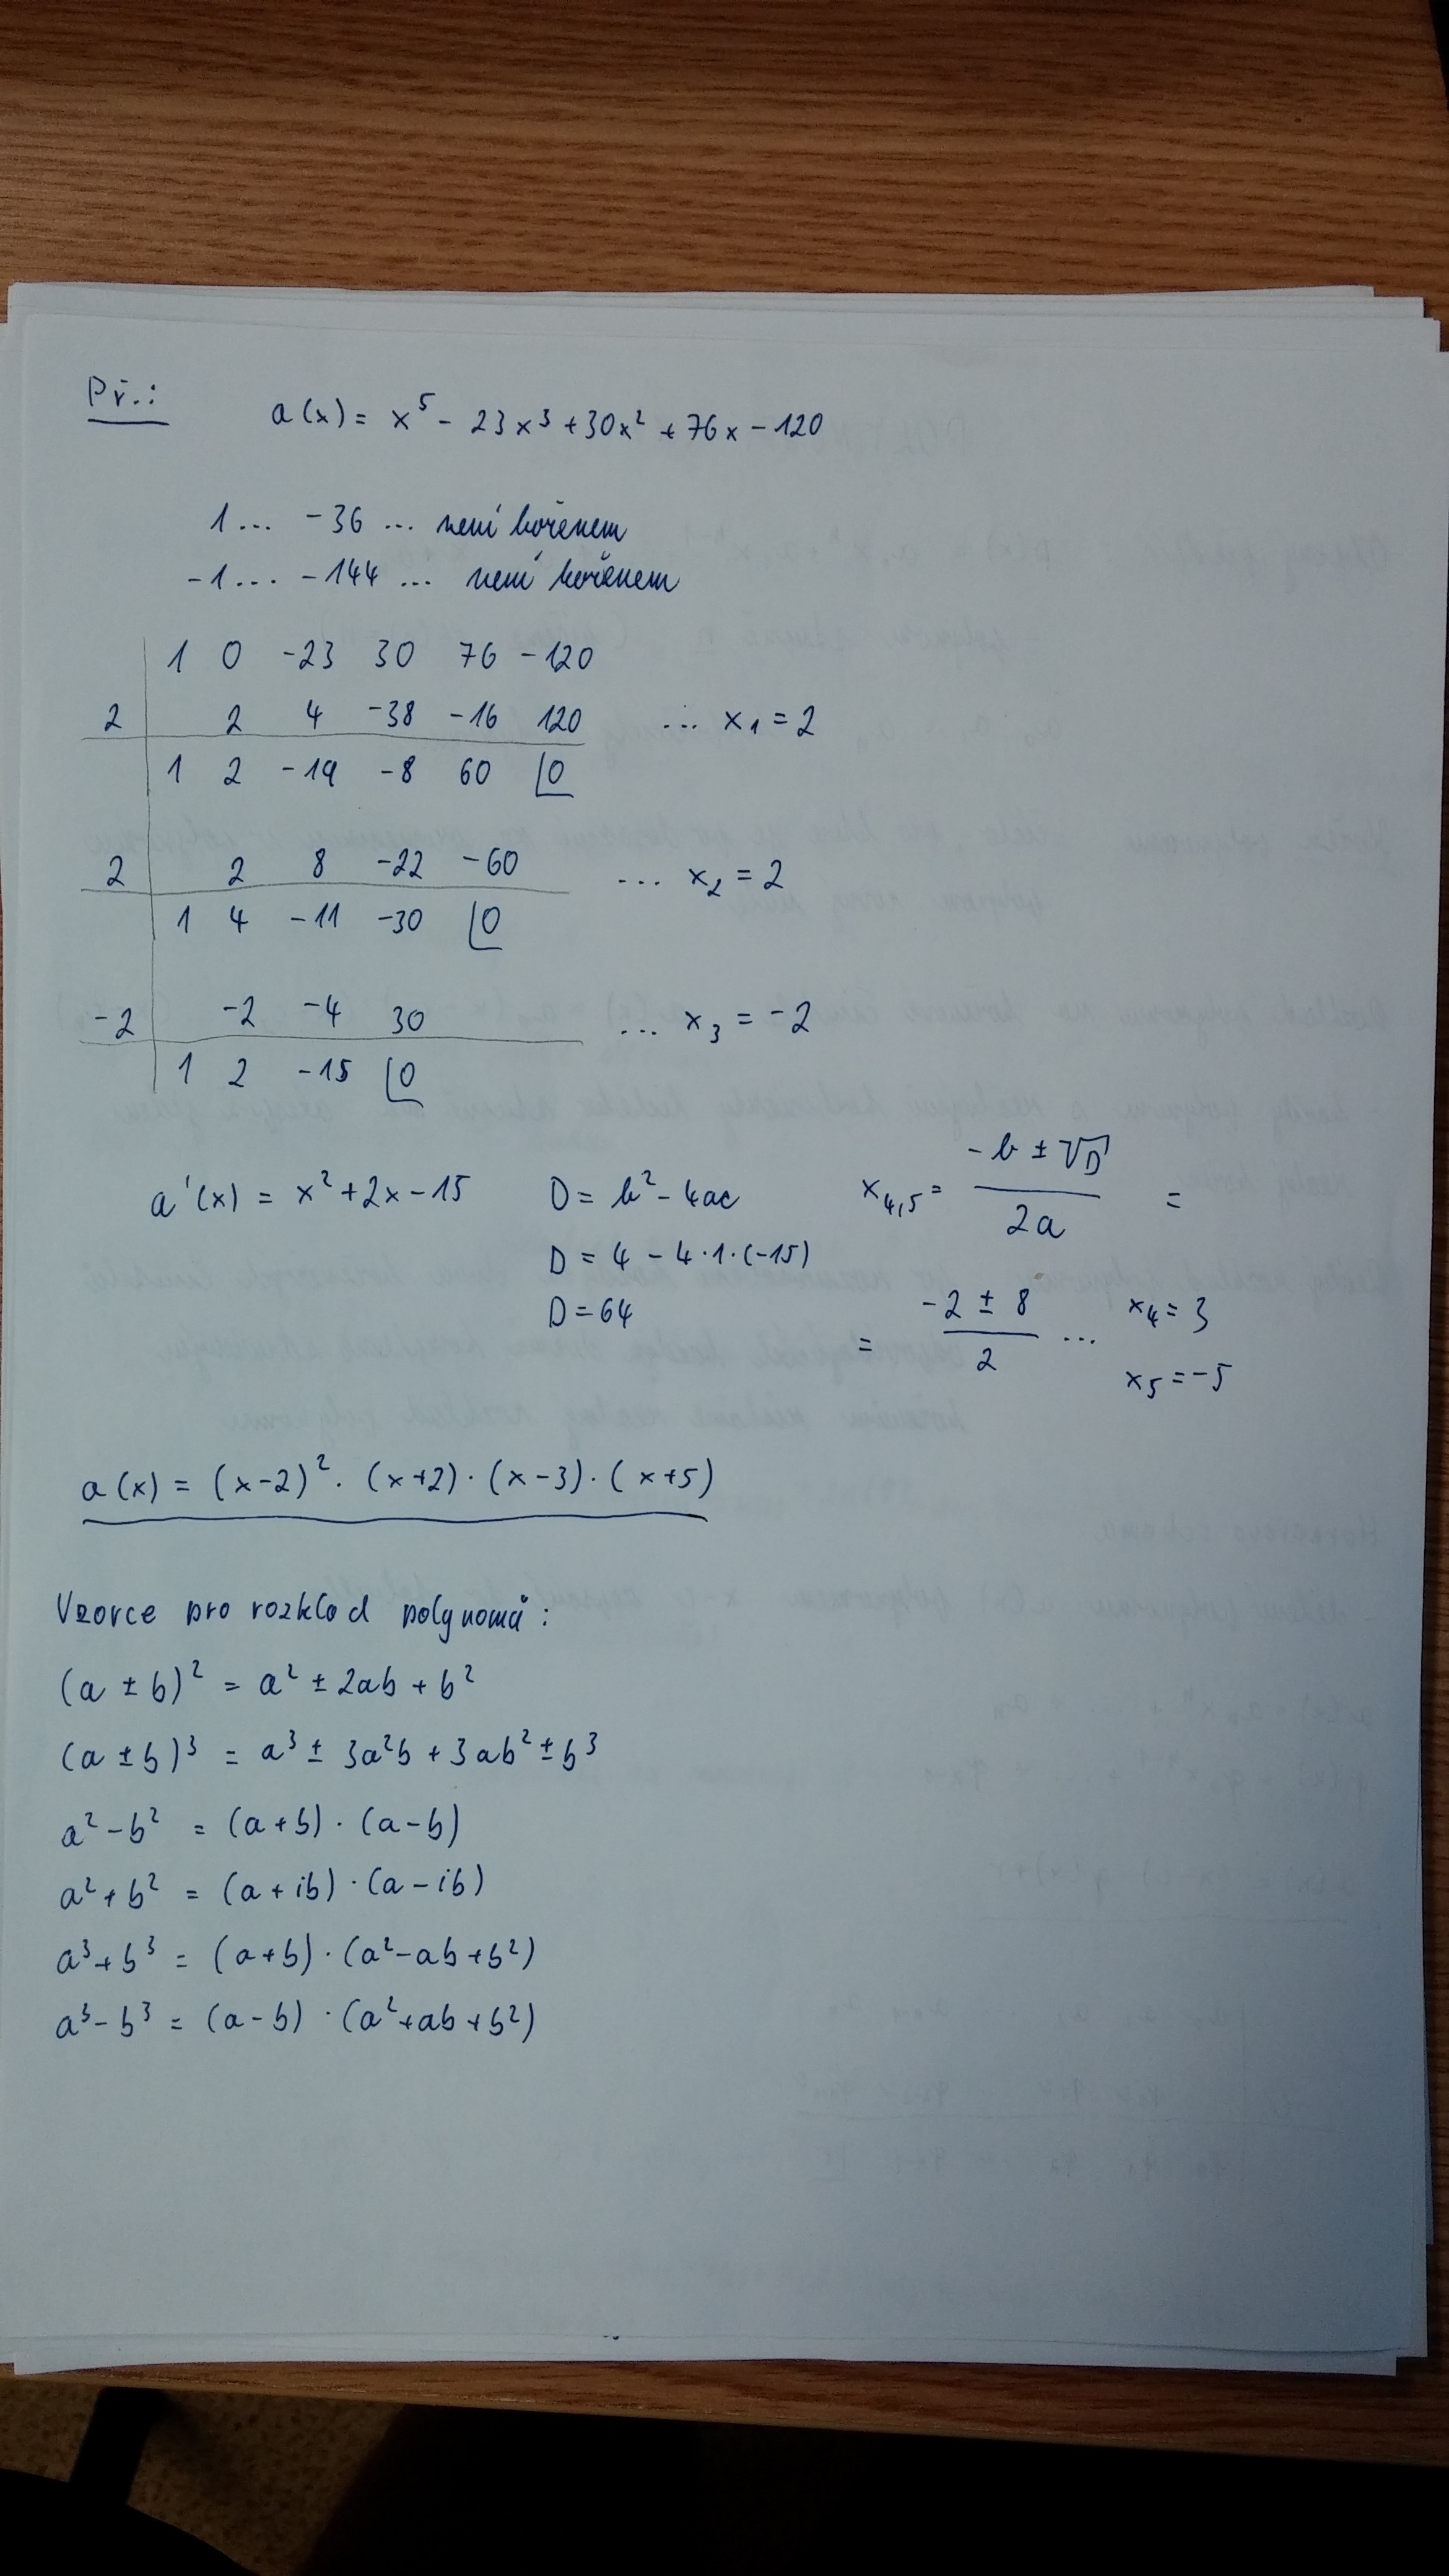 Př.: a(x) = x⁵ - 23x³ + 30x² + 76x - 120
1 ... -36 ... není kořenem
-1 ... -144 ... není kořenem
1 0 -23 30 76 -120
2 2 4 -38 -16 120 ... x₁ = 2
1 2 -19 -8 60 0
2 2 8 -22 -60 ... x₂ = 2
1 4 -11 -30 0
-2 -2 -4 30 ... x₃ = -2
1 2 -15 0
a'(x) = x² + 2x - 15 D = b² - 4ac x₄,₅ = (-b ± √D)/(2a) =
D = 4 - 4·1·(-15)
D = 64 = (-2 ± 8)/2 ... x₄ = 3
x₅ = -5
a(x) = (x-2)² · (x+2) · (x-3) · (x+5)
Vzorce pro rozklad polynomů:
(a ± b)² = a² ± 2ab + b²
(a ± b)³ = a³ ± 3a²b + 3ab² ± b³
a² - b² = (a+b) · (a-b)
a² + b² = (a+ib) · (a-ib)
a³ + b³ = (a+b) · (a² - ab + b²)
a³ - b³ = (a-b) · (a² + ab + b²)